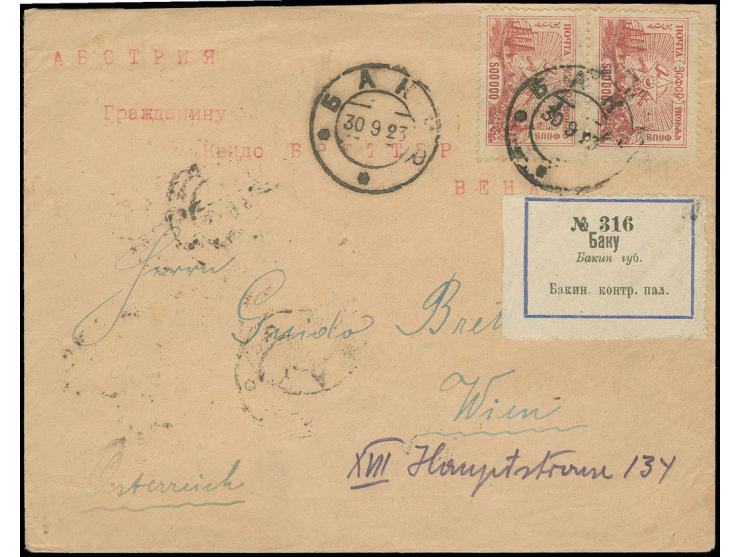 АВСТРИЯ
Гражданину
Квидо БРЕТТЕР
ВЕНА
БАКУ
30 9 23
БАКУ
30 9 23
ПОЧТА
500000
ПОЧТА
500000
№ 316
Баку
Бакин губ.
Бакин. контр. пал.
Herrn
Guido Bret
Wien
XVII Hauptstrasse 134
Österreich